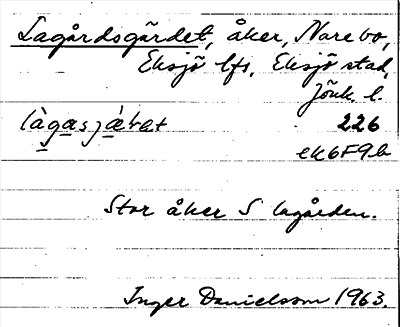 Lagårdsgärdet, åker, Narebo,
Eksjö lfs, Eksjö stad,
Jönk. l.
làgasjǽrat 226
ek6F9b
Stor åker S lagården.
Inger Danielsson 1963.